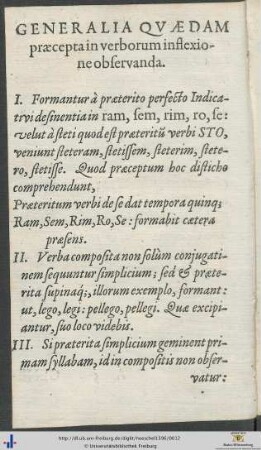 GENERALIA QVÆDAM
præcepta in verborum inflexio-
ne observanda.
I. Formantur à præterito perfecto Indica-
tivi desinentia in ram, sem, rim, ro, se:
velut à steti quod est præteritũ verbi STO,
veniunt steteram, stetissem, steterim, stete-
ro, stetisse. Quod præceptum hoc disticho
comprehendunt,
Præteritum verbi de se dat tempora quinq;
Ram, Sem, Rim, Ro, Se: formabit cætera
præsens.
II. Verba composita non solùm conjugati-
nem sequuntur simplicium; sed & præte-
rita supinaq;, illorum exemplo, formant:
ut, lego, legi: pellego, pellegi. Quæ excipi-
antur, suo loco videbis.
III. Si præterita simplicium geminent pri-
mam syllabam, id in compositis non obser-
vatur:
© Universitätsbibliothek Freiburg
Baden-Württemberg